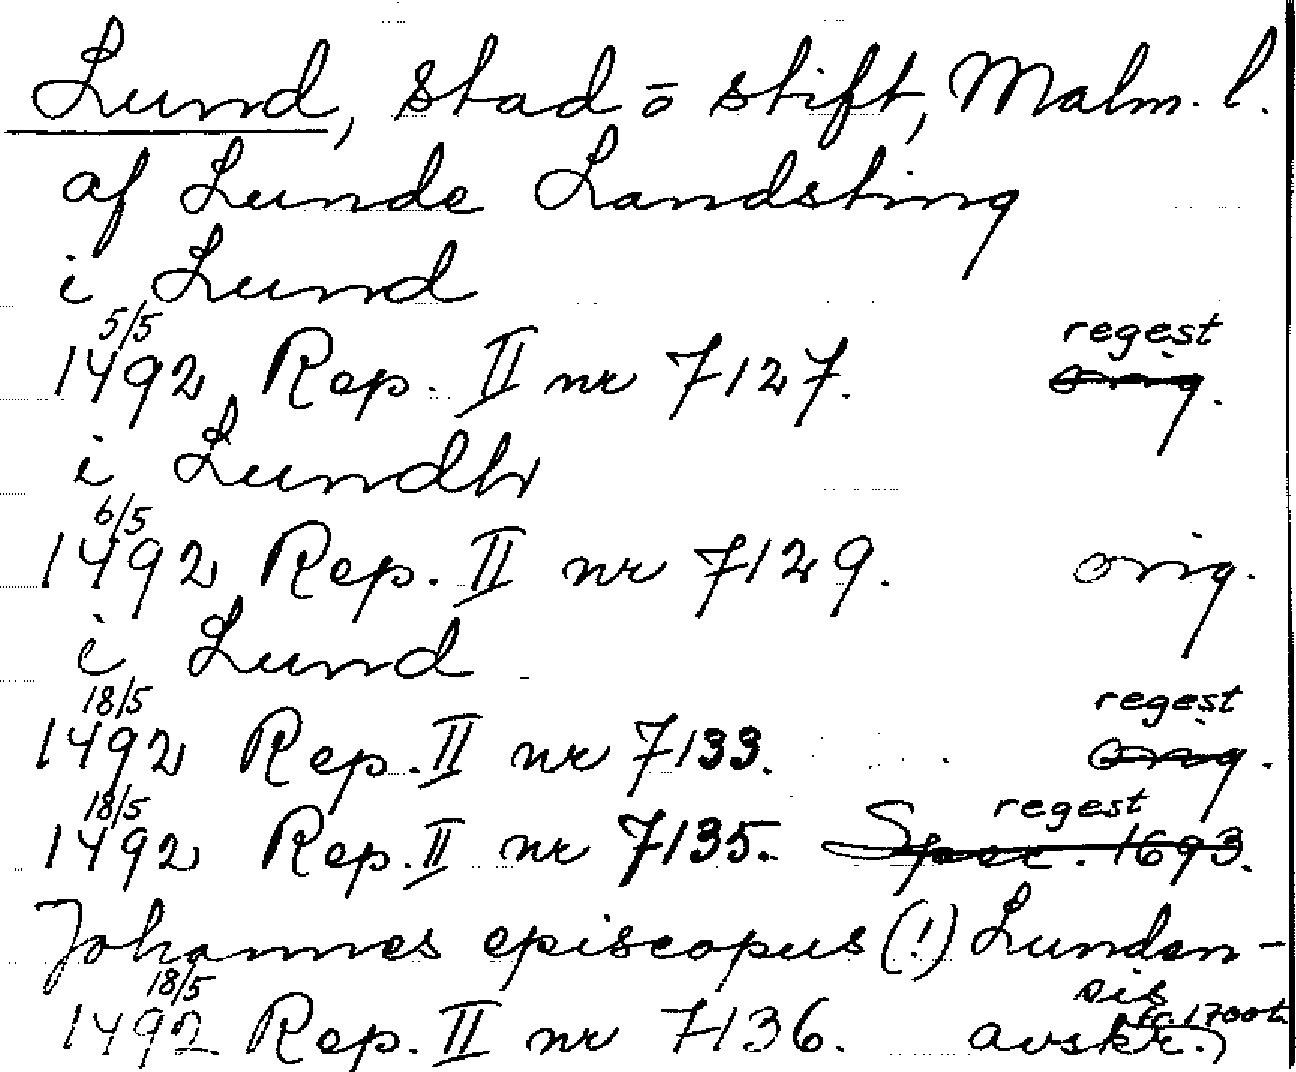 Lund, stad o stift, Malm. l.
af Lunde Landsting
i Lund
5/5
1492 Rep. II nr 7127. regest orig.
i Lundh
6/5
1492 Rep. II nr 7129. orig.
i Lund
18/5
1492 Rep. II nr 7133. regest orig.
18/5
1492 Rep. II nr 7135. regest Spec. 1693.
Johannes episcopus (!) Lunden-
sis
18/5
1492 Rep. II nr 7136. avskr.